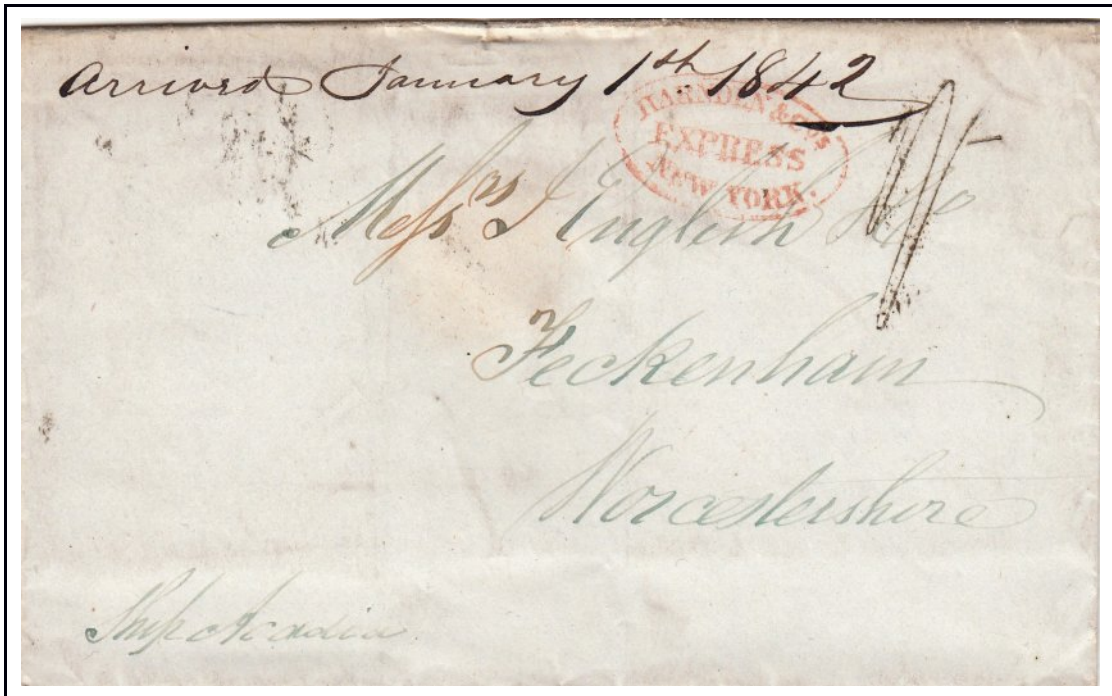 Arrived January 1st 1842
HARNDEN & CO'S
EXPRESS
NEW YORK.
Messrs J English & Co
Feckenham
Worcestershire
Ship Acadia